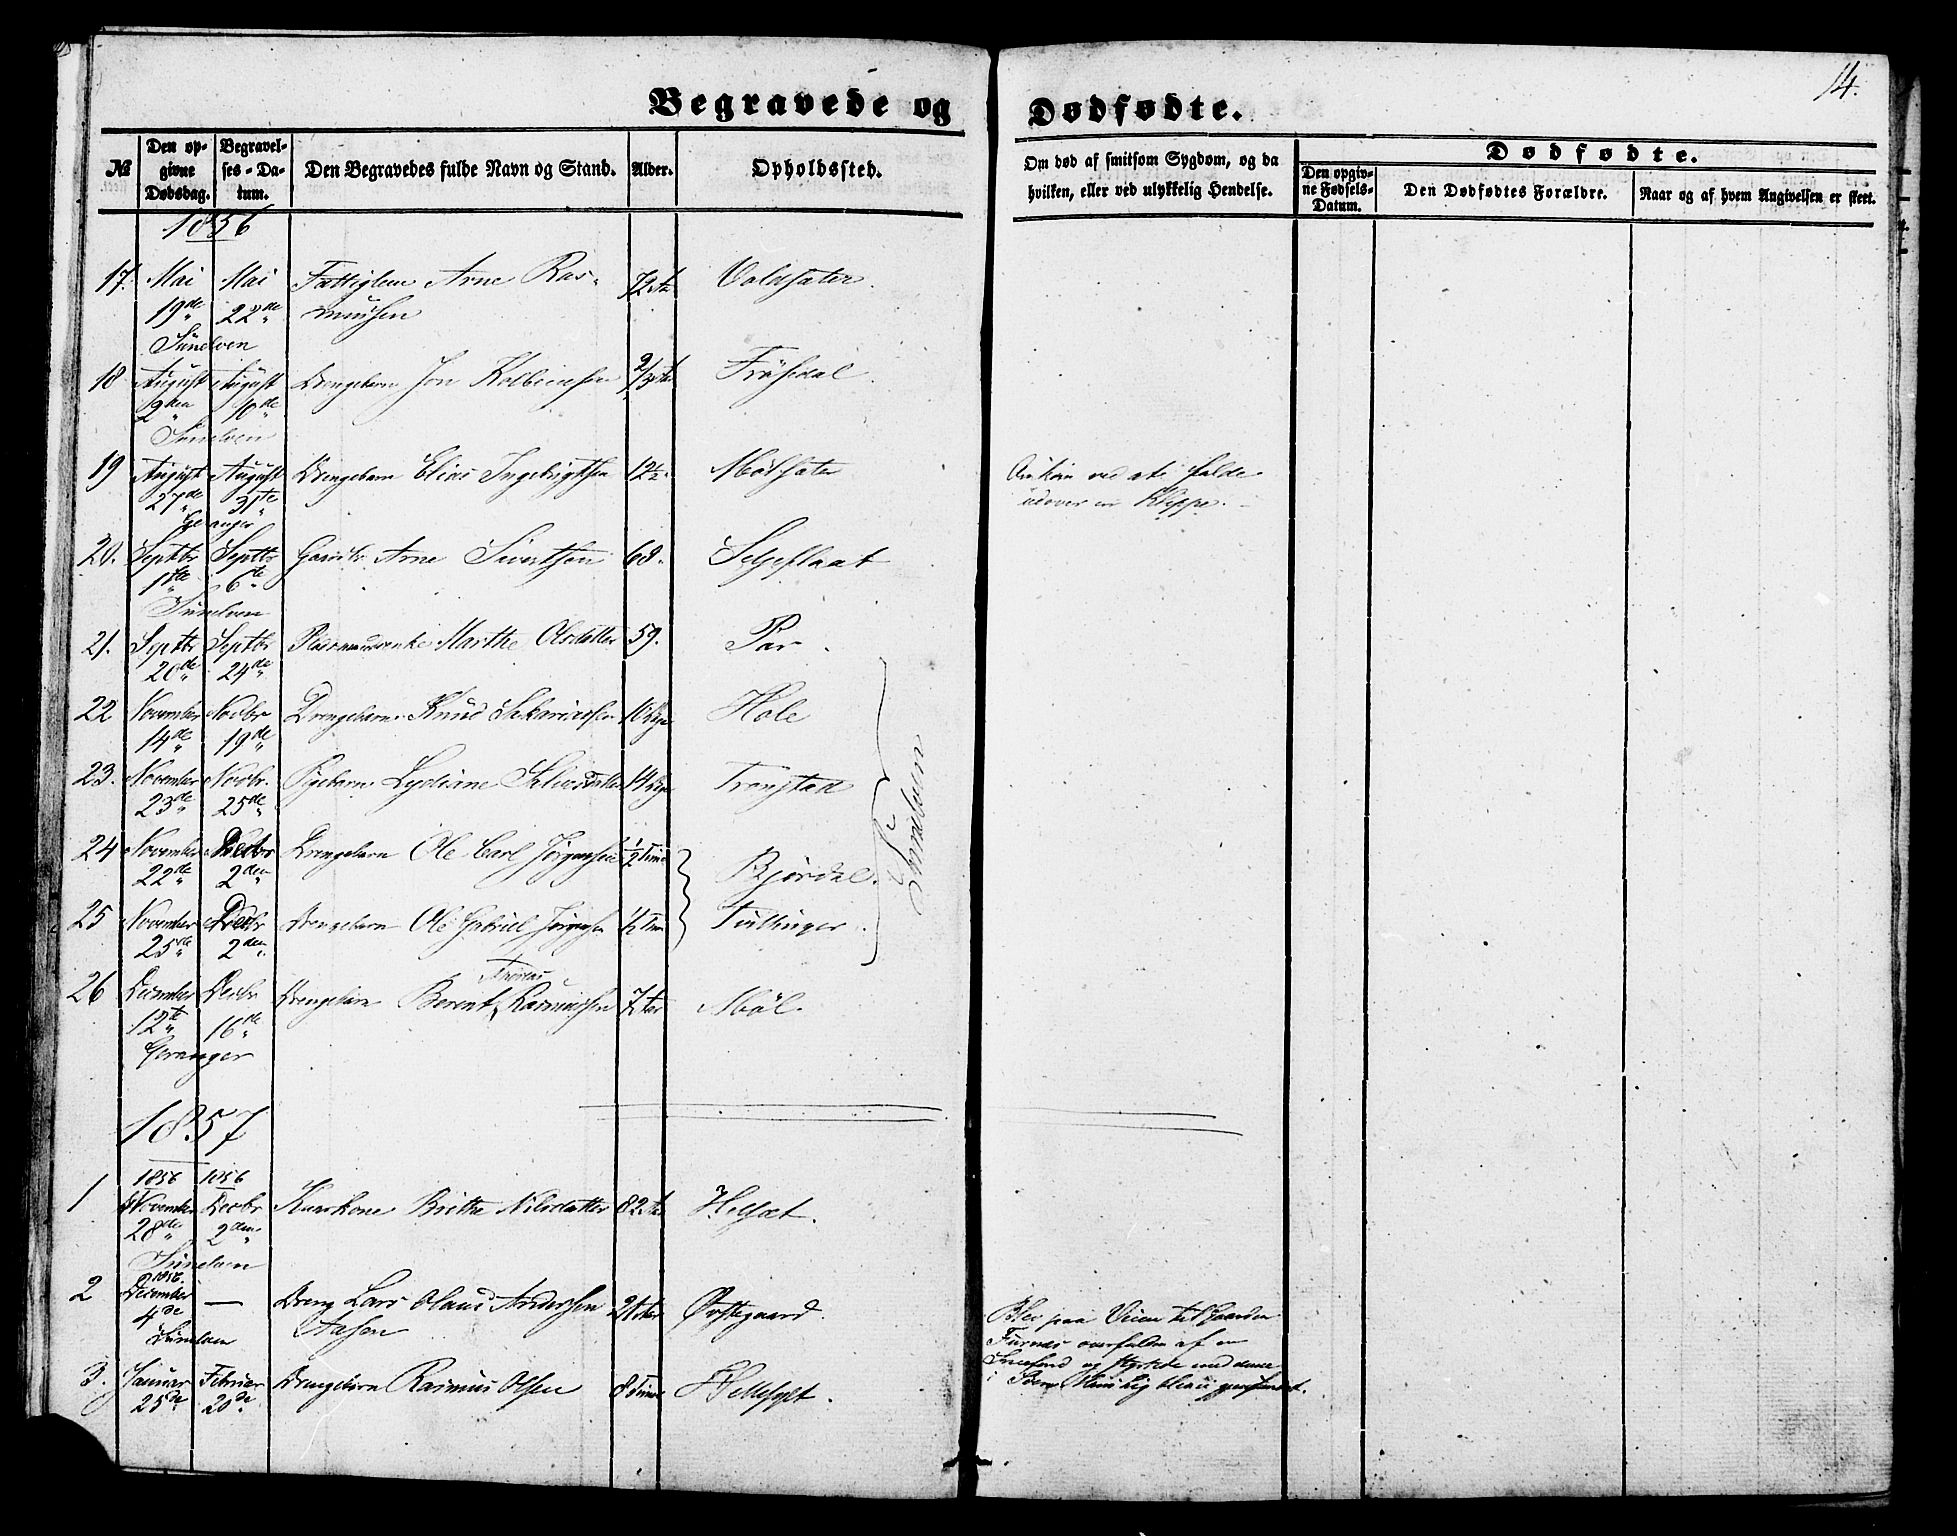 14.
Begravede og Dødfødte.
№
Den opgivne Dødsdag.
Begravelses-Datum.
Den Begravedes fulde Navn og Stand.
Alder.
Opholdssted.
Om død af smitsom Sygdom, og da hvilken, eller ved ulykkelig Hendelse.
Dødfødte.
Den opgivne Fødsels-Datum.
Den Dødfødtes Forældre.
Naar og af hvem Angivelsen er skeet.
1856
17. Mai 19de Mai 22de Fattiglem Arne Rasmussen 72 Aar
Sunelven
18 August 9den August 10de Drengebarn Jon Kolbeinsen Frøisedal
Sunelven
19 August 27de August 31te Drengebarn Elias Ingebrigtsen 12½ Møllsæter Omkom ved at falde
udover en Klippe.
Geranger
20. Septbr 1ste Septbr 6te Gaardbr Arne Sivertsen 68. Selgeflaat
Sunelven
21. Septbr 20de Septbr 24de Marthe Olsdatter 59. Par.
22 November 14de Novbr 19de Drengebarn Knud Sakariassen 10 Dage Hole
23. November 23de Novbr. 25de Pigebarn Lydiane 14 Dage Tronstad
Sunelven
24 November 22de Decbr 2den Drengebarn Ole Carl Jørgensen ½ Time Bjørdal.
25 November 25de Decbr 2den Drengebarn Ole Gabriel Jørgensen ½ Time Tvillinger.
26 December 12te Decbr 16de Drengebarn Berent Rasmussen Møl.
Geranger
1857
1856 1856
1 November 28de Decbr 2den Brithe Nilsdatter 82 Aar Helset.
Sunelven
1856.
2 December 4de — Dreng Lars Olaus Anderssen Aasen Østegaard. Blev paa Veien til Gaarden
Furnes overfalden af en
Sneefond og styrtede med denne
i Søen.
Sunelven
3. Januar 25de Februar 20de Drengebarn Rasmus Olsen 8 Timer Hellesylt.